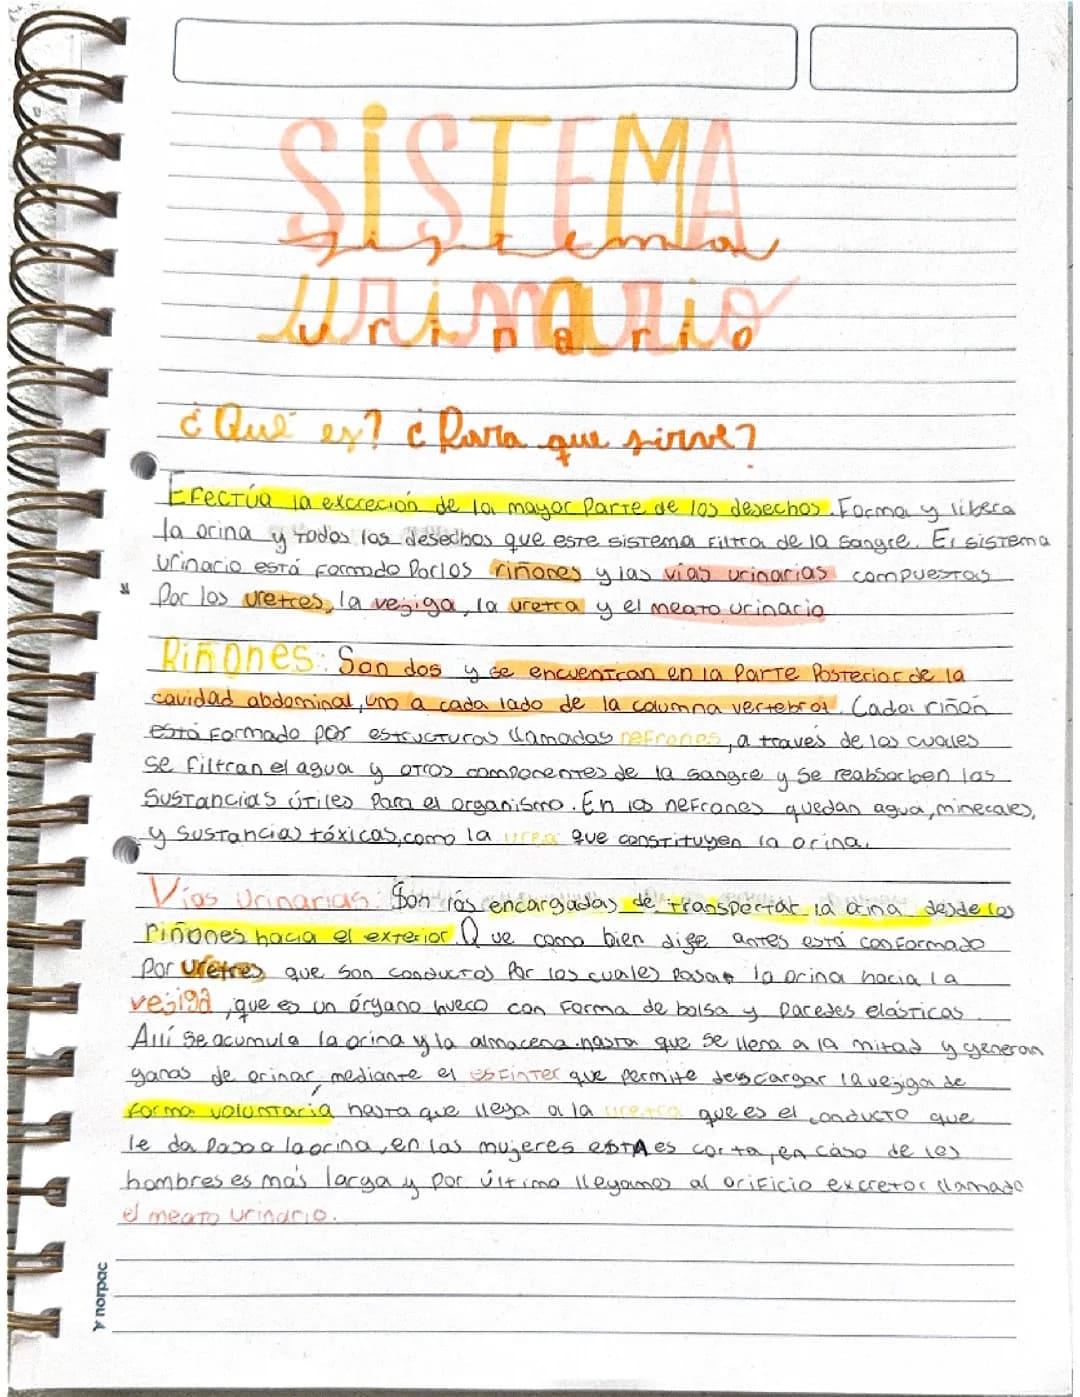 SISTEMA
sistema
urinario
urinario
¿Qué es? ¿Para que sirve?
Efectúa la excreción de la mayor parte de los desechos. Forma y libera
la orina y todos los desechos que este sistema filtra de la sangre. El sistema
urinario está formado por los riñones y las vías urinarias compuestas
por los uretres, la vejiga, la uretra y el meato urinario
Riñones: Son dos y se encuentran en la parte posterior de la
cavidad abdominal, uno a cada lado de la columna vertebral. Cada riñón
está formado por estructuras llamadas nefrones, a través de los cuales
se filtran el agua y otros componentes de la sangre y se reabsorben las
sustancias útiles para el organismo. En los nefrones quedan agua, minerales,
y sustancias tóxicas, como la urea que constituyen la orina.
Vías Urinarias: Son las encargadas de transportar la orina desde los
riñones hacia el exterior. Que como bien dije antes está conformado
por uretres que son conductos por los cuales pasan la orina hacia la
vejiga, que es un órgano hueco con forma de bolsa y paredes elásticas.
Allí se acumula la orina y la almacena hasta que se llena a la mitad y generan
ganas de orinar, mediante el esfínter que permite descargar la vejiga de
forma voluntaria hasta que llega a la uretra que es el conducto que
le da paso a la orina, en las mujeres esta es corta, en caso de los
hombres es más larga y por último llegamos al orificio excretor llamado
el meato urinario.
norpac